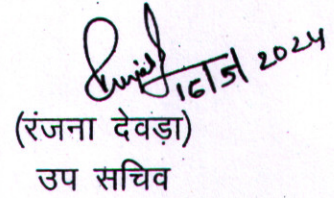 16/5/2024
(रंजना देवड़ा)
उप सचिव